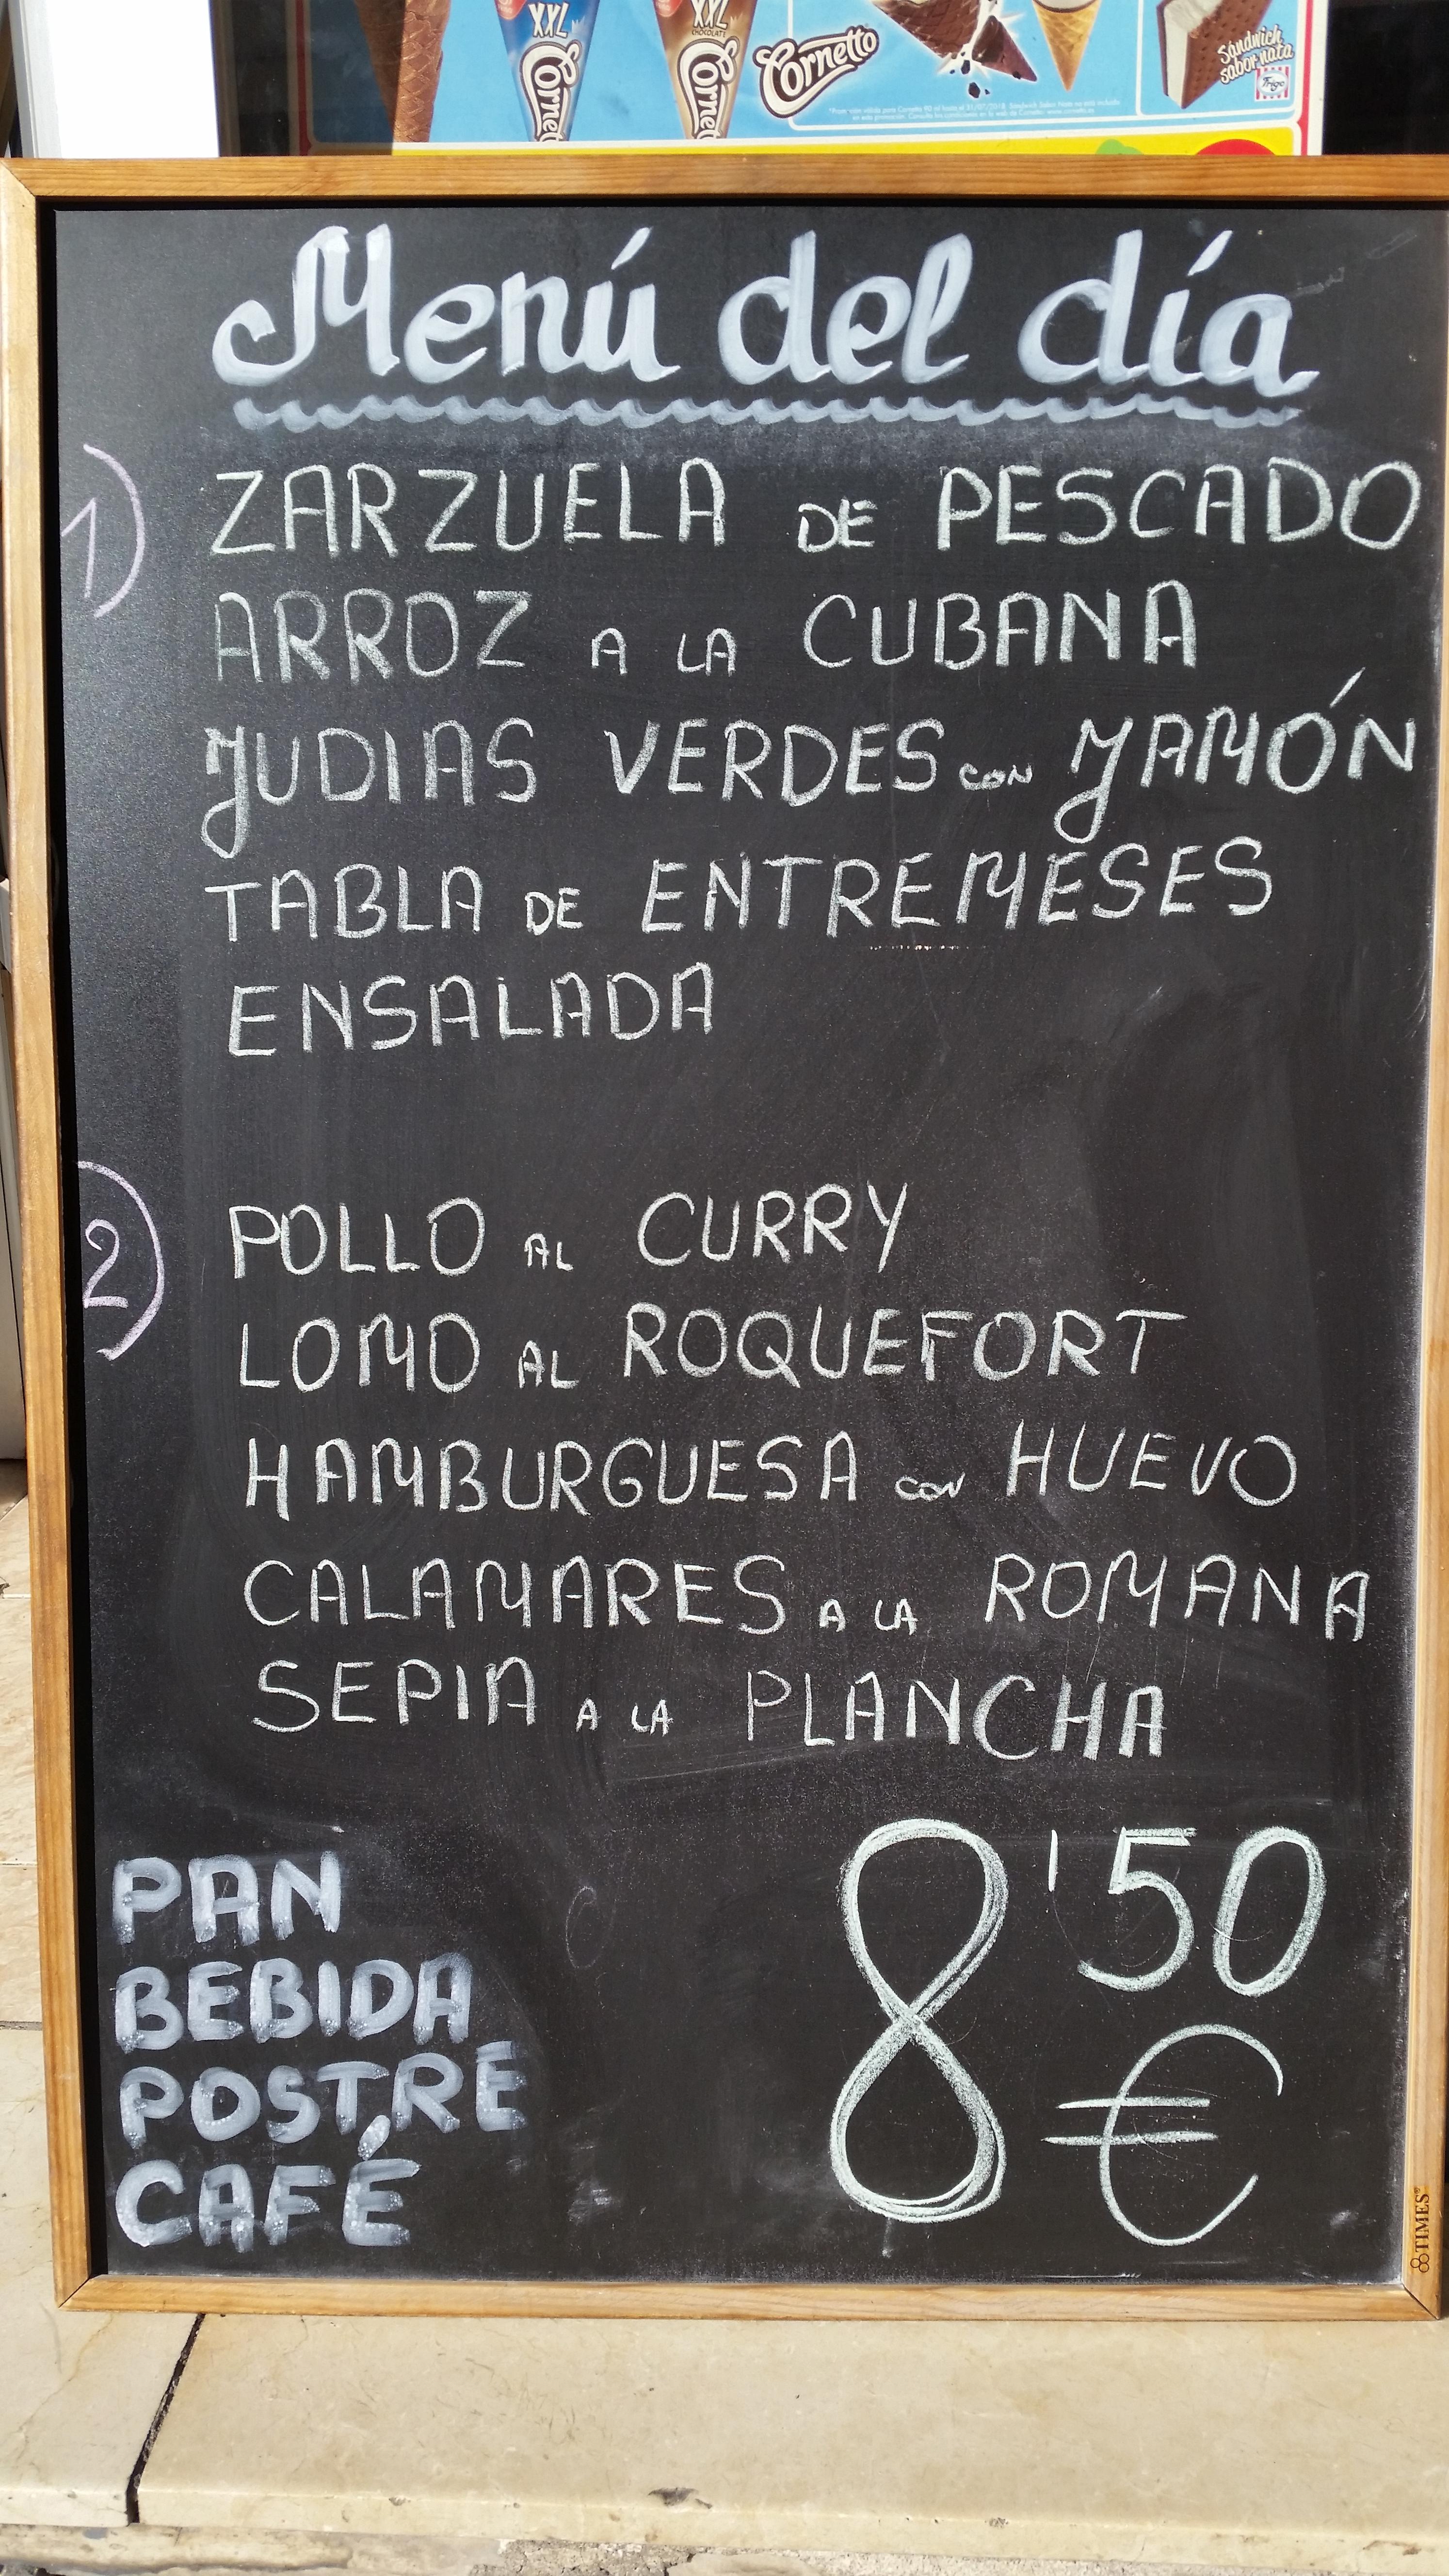 XXL
Cornetto
XXL
CHOCOLATE
Cornetto
Cornetto
Sándwich
sabor nata
Frigo
Menú del día
1)
ZARZUELA DE PESCADO
ARROZ A LA CUBANA
JUDIAS VERDES CON JAMÓN
TABLA DE ENTREMESES
ENSALADA
2)
POLLO AL CURRY
LOMO AL ROQUEFORT
HAMBURGUESA CON HUEVO
CALAMARES A LA ROMANA
SEPIA A LA PLANCHA
PAN
BEBIDA
POSTRE
CAFÉ
8'50
€
TIMES